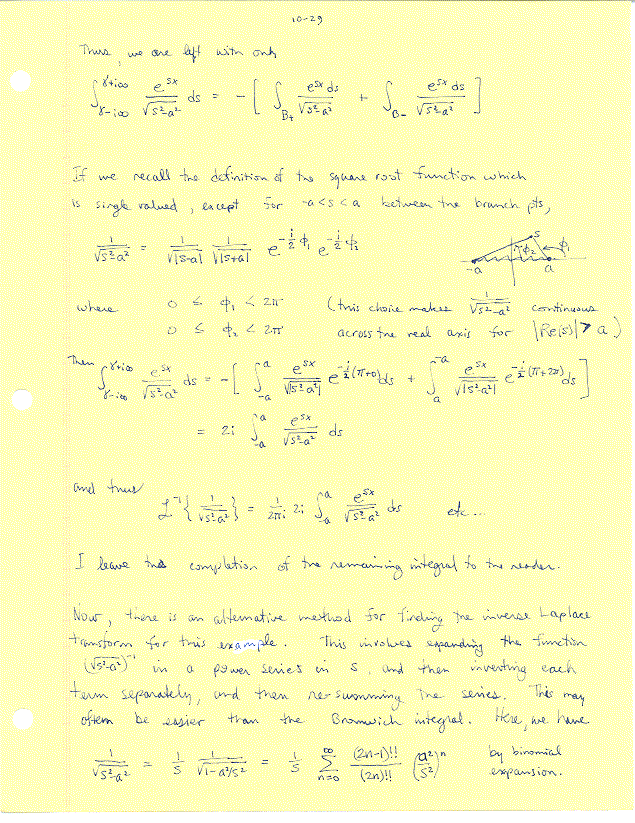 10-29
Thus, we are left with only
∫_{γ-i∞}^{γ+i∞} e^{sx}/√(s²-a²) ds = - [ ∫_{B+} e^{sx} ds/√(s²-a²) + ∫_{B-} e^{sx} ds/√(s²-a²) ]
If we recall the definition of the square root function which
is single valued, except for -a<s<a between the branch pts,
1/√(s²-a²) = 1/√|s-a| 1/√|s+a| e^{-i/2 φ₁} e^{-i/2 φ₂}
s φ₂ φ₁ -a a
where 0 ≤ φ₁ < 2π (this choice makes 1/√(s²-a²) continuous
0 ≤ φ₂ < 2π across the real axis for |Re(s)| > a.)
Then ∫_{γ-i∞}^{γ+i∞} e^{sx}/√(s²-a²) ds = - [ ∫_{-a}^{a} e^{sx}/√|s²-a²| e^{-i/2(π+0)} ds + ∫_{a}^{-a} e^{sx}/√|s²-a²| e^{-i/2(π+2π)} ds ]
= 2i ∫_{-a}^{a} e^{sx}/√(s²-a²) ds
and thus
L⁻¹{ 1/√(s²-a²) } = 1/2πi 2i ∫_{-a}^{a} e^{sx}/√(s²-a²) ds etc...
I leave the completion of the remaining integral to the reader.
Now, there is an alternative method for finding the inverse Laplace
transform for this example. This involves expanding the function
(√(s²-a²))⁻¹ in a power series in s, and then inverting each
term separately, and then re-summing the series. This may
often be easier than the Bromwich integral. Here, we have
1/√(s²-a²) = 1/s 1/√(1-a²/s²) = 1/s ∑_{n=0}^{∞} (2n-1)!!/(2n)!! (a²/s²)ⁿ by binomial
expansion.